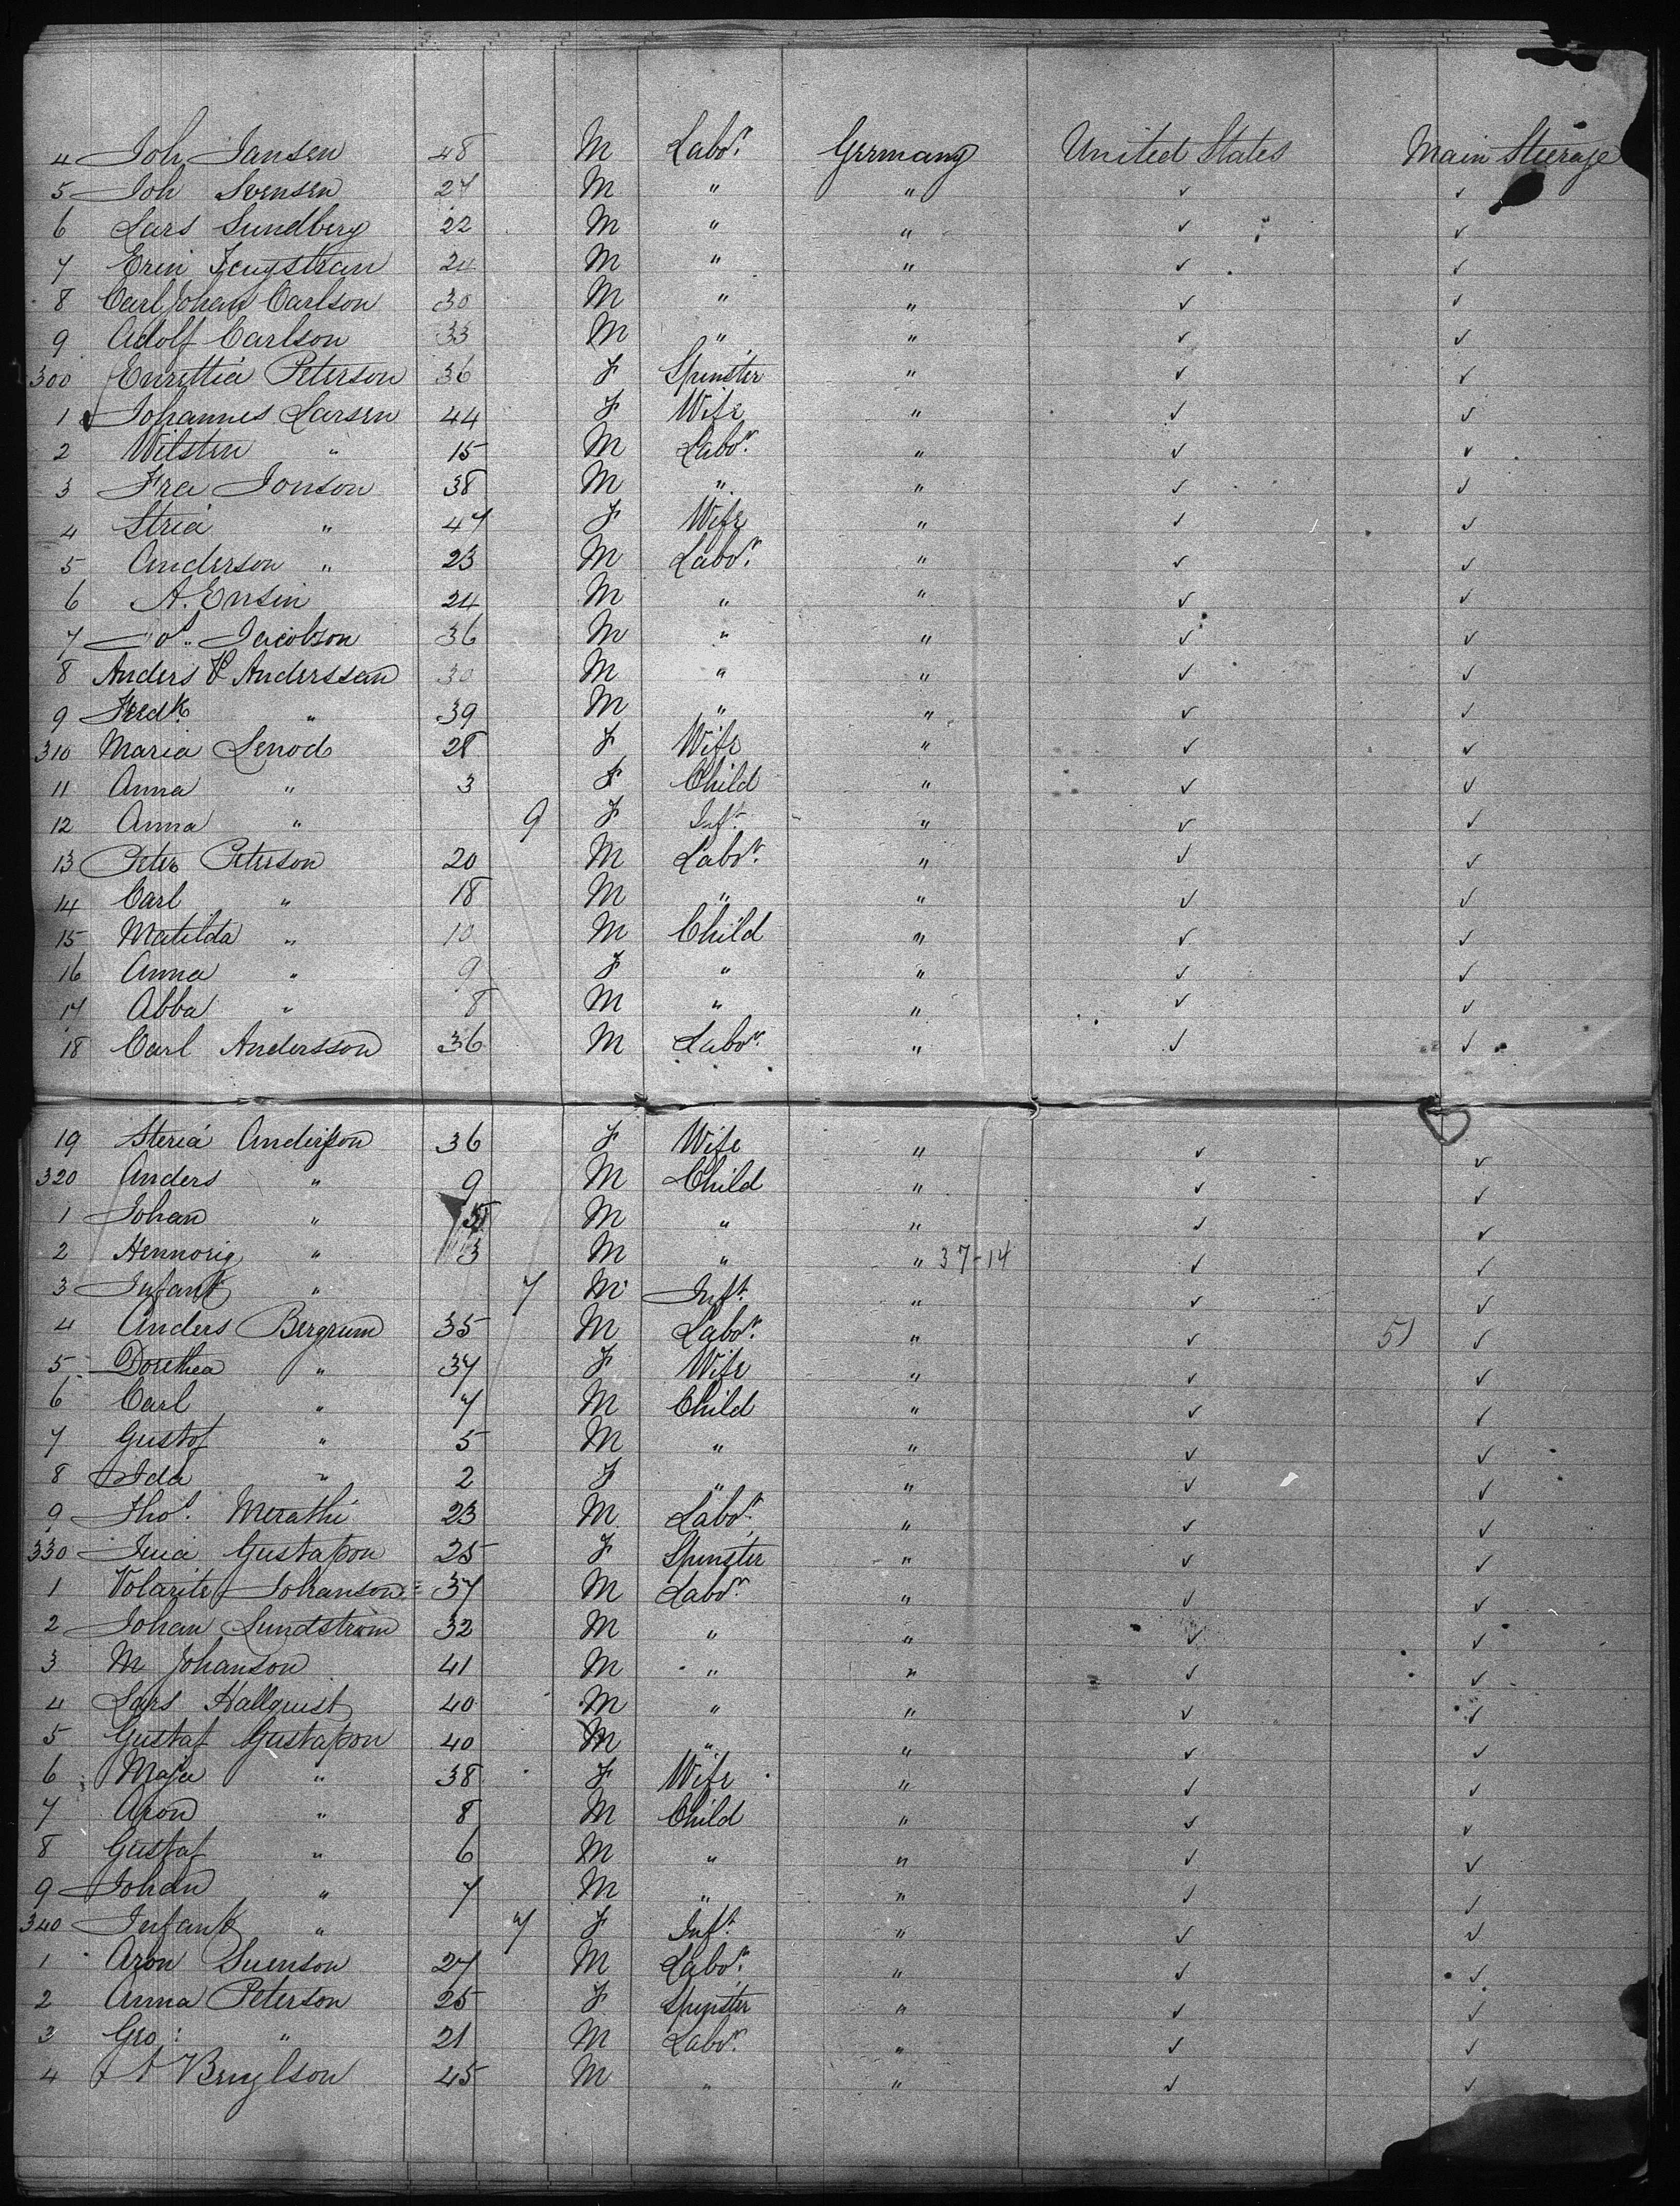 4 Joh Jansen 48 M Labor. Germany United States Main Steerage
5 Joh Svensen 27 M " " ✓ ✓
6 Lars Sundberg 22 M " " ✓ ✓
7 Erin 24 M " " ✓ ✓
8 Carl Johan Carlson 30 M " " ✓ ✓
9 Adolf Carlson 33 M " " ✓ ✓
300 Enrettia Peterson 36 F Spinster " ✓ ✓
1 Johannes Larsen 44 F Wife " ✓ ✓
2 Wilsten " 15 M Labor. " ✓ ✓
3 Fra Jonson 38 M " " ✓ ✓
4 Stria " 47 F Wife " ✓ ✓
5 Anderson " 23 M Labor. " ✓ ✓
6 A. Ensin 24 M " " ✓ ✓
7 Jacobson 36 M " " ✓ ✓
8 Anders P Anderssan 30 M " " ✓ ✓
9 Fredk. " 39 M " " ✓ ✓
310 Maria Lenod 28 F Wife " ✓ ✓
11 Anna " 3 F Child " ✓ ✓
12 Anna " 9 F Inft. " ✓ ✓
13 Peter Peterson 20 M Labor. " ✓ ✓
14 Carl " 18 M " " ✓ ✓
15 Matilda " 10 M Child " ✓ ✓
16 Anna " 9 F " " ✓ ✓
17 Abba " 8 M " " ✓ ✓
18 Carl Andersson 36 M Labor. " ✓ ✓
19 Steria Anderson 36 F Wife " ✓ ✓
320 Anders " 9 M Child " ✓ ✓
1 Johan " 5 M " " ✓ ✓
2 Hennorig " 3 M " " 37-14 ✓ ✓
3 Infant " 7 M Inft. " ✓ ✓
4 Anders Bergrum 35 M Labor. " ✓ 51 ✓
5 Dorethea " 37 F Wife " ✓ ✓
6 Carl " 7 M Child " ✓ ✓
7 Gustof " 5 M " " ✓ ✓
8 Ida " 2 F " " ✓ ✓
9 Thos. Merathi 23 M Labor. " ✓ ✓
330 Gustafson 25 F Spinster " ✓ ✓
1 Volarite Johanson 37 M Labor. " ✓ ✓
2 Johan Lundstrom 32 M " " ✓ ✓
3 M Johanson 41 M " " ✓ ✓
4 Lars Hallquist 40 M " " ✓ ✓
5 Gustaf Gustafson 40 M " " ✓ ✓
6 Maja " 38 F Wife " ✓ ✓
7 Aron " 8 M Child " ✓ ✓
8 Gustaf " 6 M " " ✓ ✓
9 Johan " 7 M " " ✓ ✓
340 Infant " 7 F Inft. " ✓ ✓
1 Aron Suenson 27 M Labor. " ✓ ✓
2 Anna Peterson 25 F Spinster " ✓ ✓
3 Geo: " 21 M Labor. " ✓ ✓
4 A 45 M " " ✓ ✓